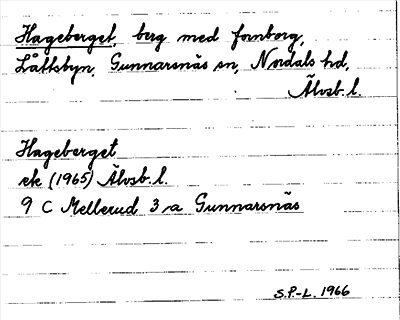 Hageberget, berg med fornborg,
Låttsbyn, Gunnarsnäs sn, Nordals hd,
Älvsb. l.
Hageberget
ek (1965) Älvsb. l.
9 C Mellerud 3 a Gunnarsnäs
S.P.-L. 1966